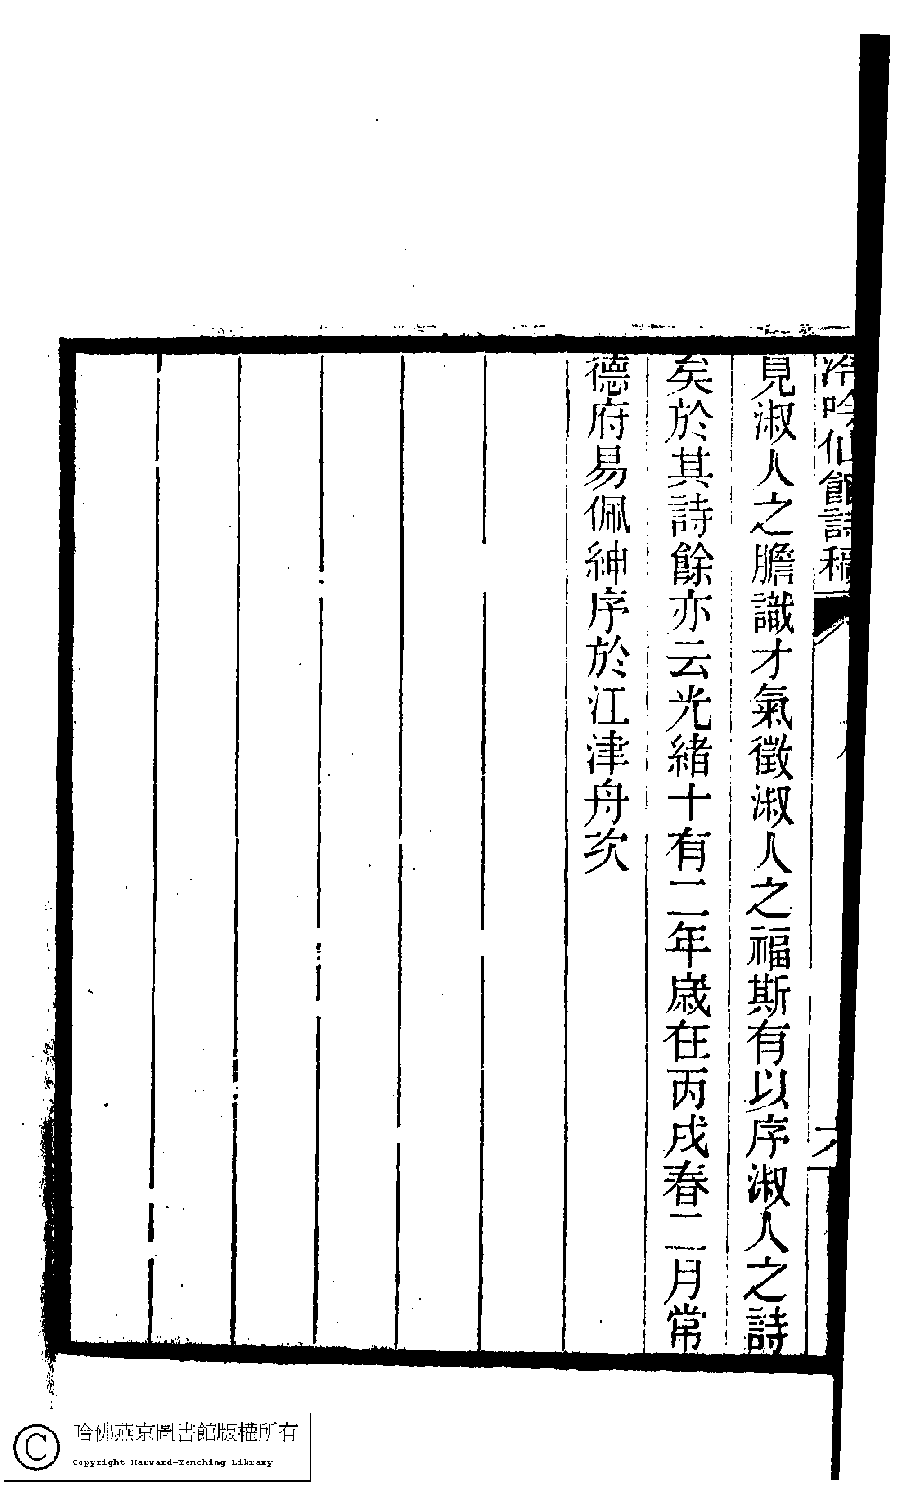 冷吟仙館詩稿
六
見淑人之膽識才氣徵淑人之福斯有以序淑人之詩
矣於其詩餘亦云光緒十有二年歲在丙戌春二月常
德府易佩紳序於江津舟次
哈佛燕京圖書館版權所有
Copyright Harvard-Yenching Library